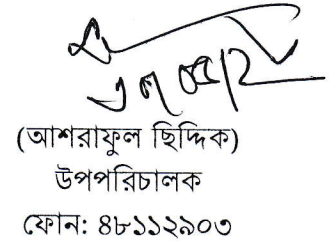 (আশরাফুল ছিদ্দিক)
উপপরিচালক
ফোন: ৪৮১১২৯০৩